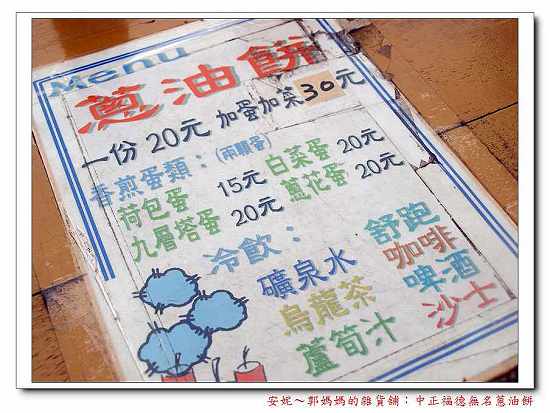 Menu
蔥油餅
一份 20元 加蛋加菜30元
香煎蛋類：(兩顆蛋)
荷包蛋 15元 白菜蛋 20元
九層塔蛋 20元 蔥花蛋 20元
冷飲：
礦泉水 舒跑
烏龍茶 咖啡
蘆筍汁 啤酒
沙士
安妮～郭媽媽的雜貨舖：中正福德無名蔥油餅